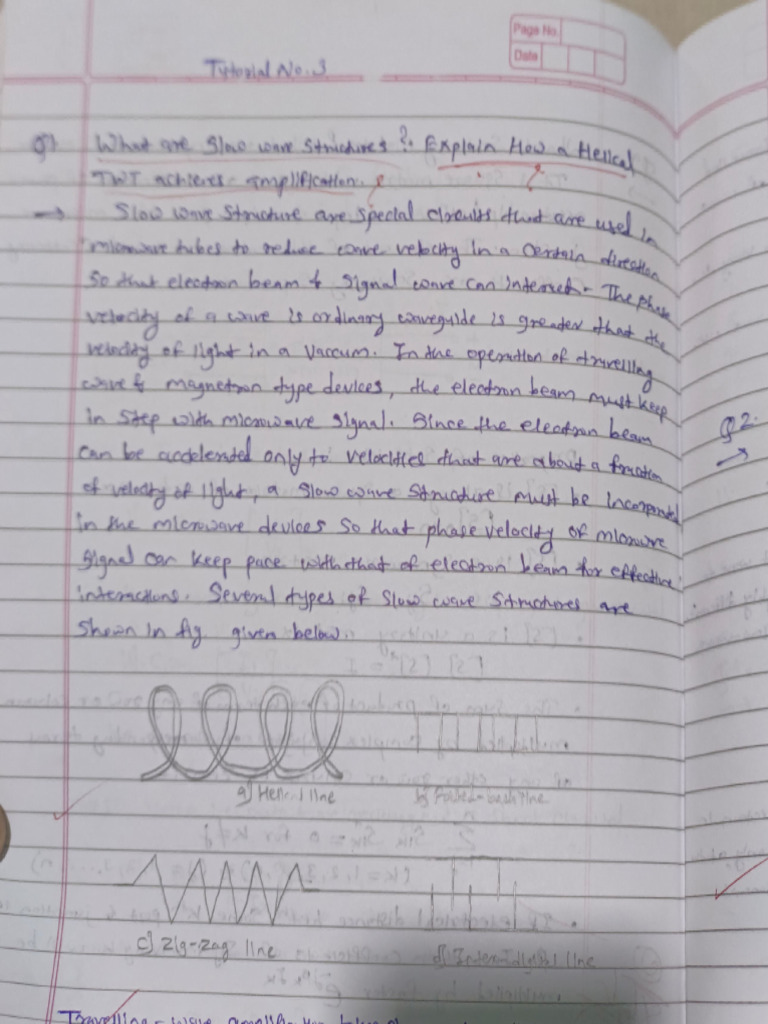 Page No.
Date
Tutorial No. 3
Q1 What are Slow wave Structures? Explain How a Helical
TWT achieves amplification.
→ Slow wave Structure are special circuits that are used in
microwave tubes to reduce wave velocity in a certain direction
So that electron beam & signal wave can interact. The phase
velocity of a wave is ordinary waveguide is greater that the
velocity of light in a vaccum. In the operation of travelling
wave & magnetron type devices, the electron beam must keep
in step with microwave signal. Since the electron beam
can be accelerated only to velocities that are about a fraction
of velocity of light, a slow wave structure must be incorporated
in the microwave devices so that phase velocity of microwave
signal can keep pace with that of electron beam for effective
interactions. Several types of slow wave structures are
shown in fig given below.
a) Helical line
b) line
c) Zig-Zag line
d) Interdigital line
Travelling-wave
Q2.
→